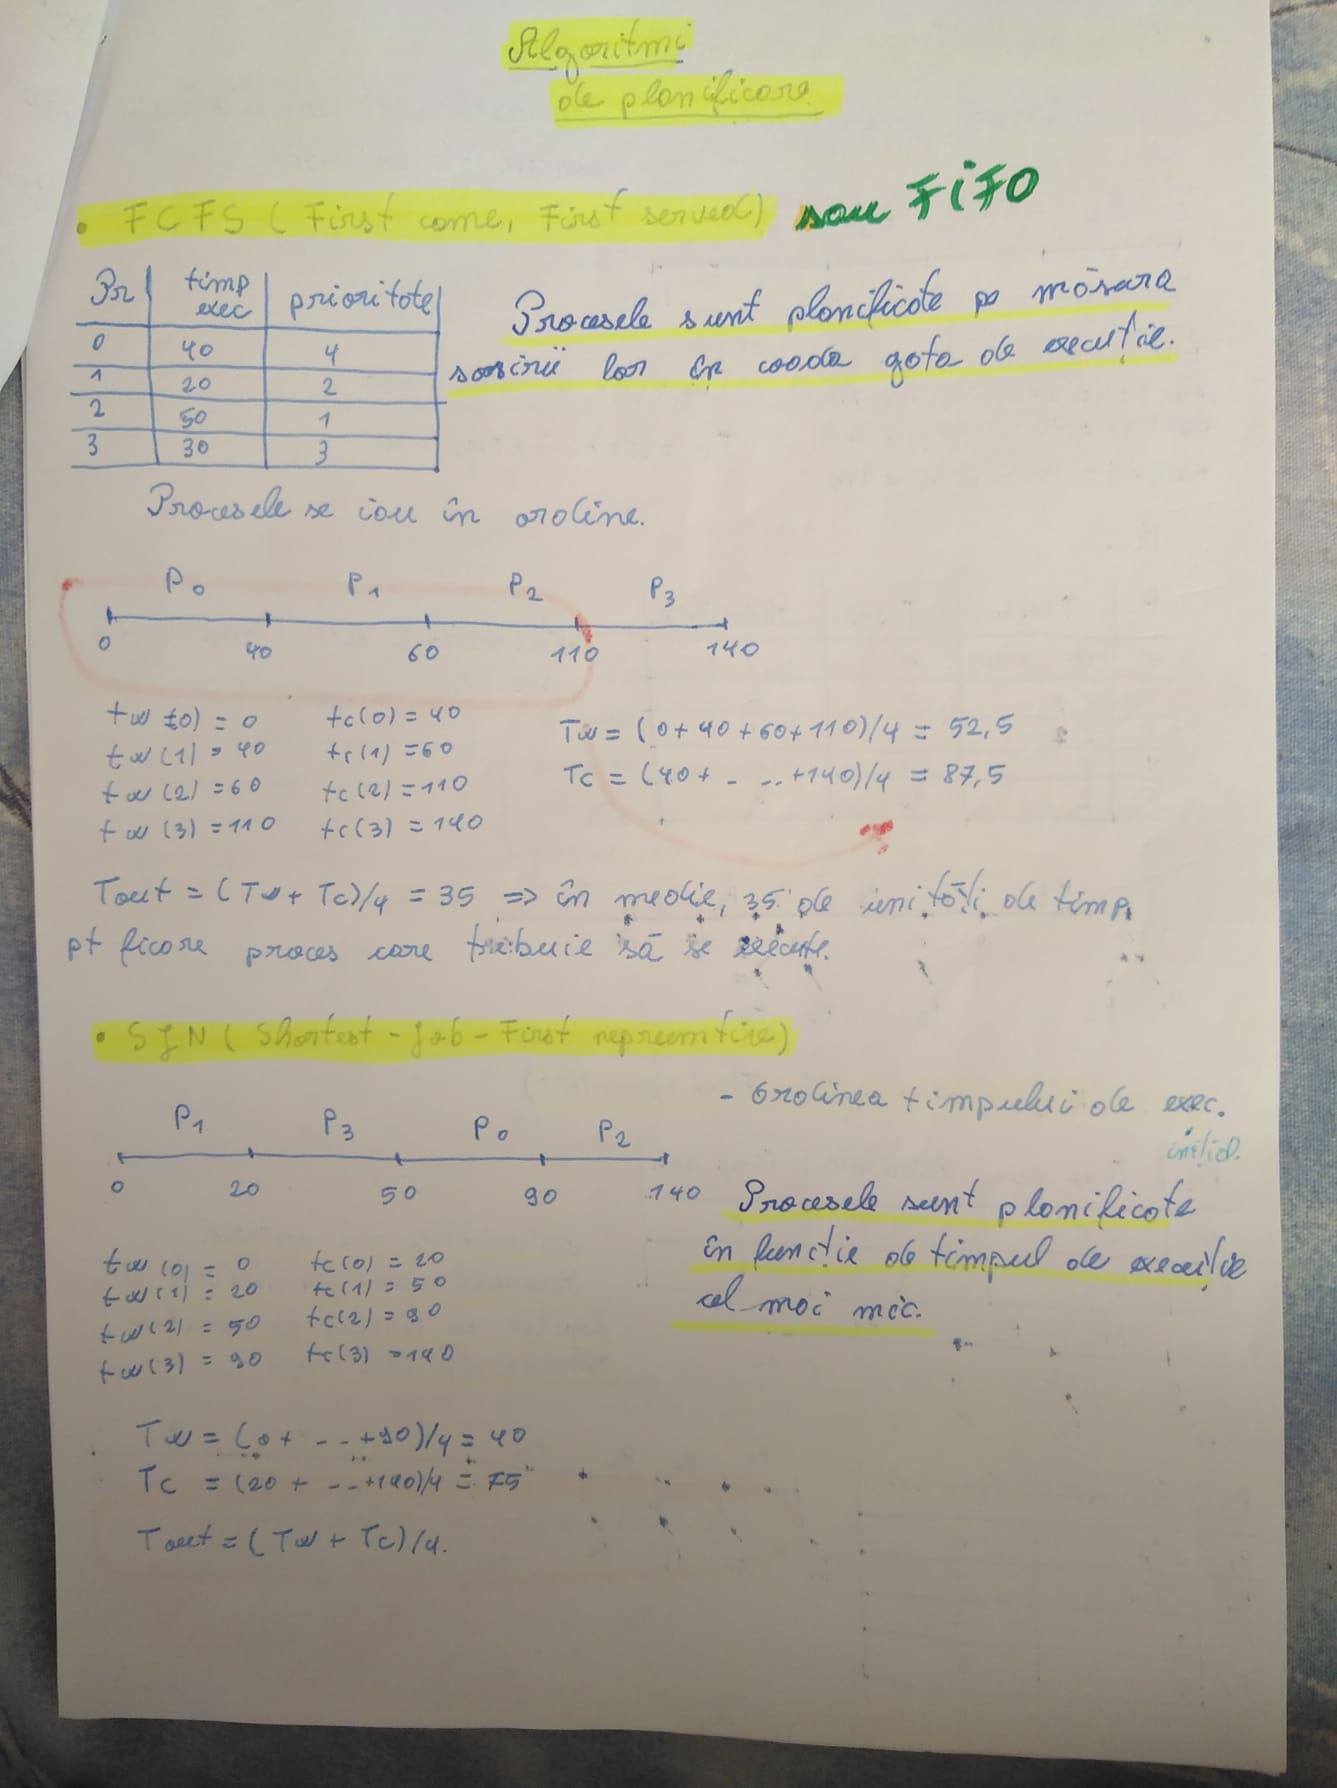 Algoritmi
de planificare
• FCFS (First come, First served) sau FiFO
Pr | timp exec | prioritate
0 | 40 | 4
1 | 20 | 2
2 | 50 | 1
3 | 30 | 3
Procesele sunt planificate pe măsura
sosirii lor în coada gata de execuție.
Procesele se iau în ordine.
P0 P1 P2 P3
0 40 60 110 140
tw(0) = 0 tc(0) = 40
tw(1) = 40 tc(1) = 60
tw(2) = 60 tc(2) = 110
tw(3) = 110 tc(3) = 140
Tw = (0+40+60+110)/4 = 52,5
Tc = (40+ - .. +140)/4 = 87,5
Tout = (Tw + Tc)/4 = 35 => în medie, 35 de unități de timp
pt ficare proces care trebuie să se execute.
• SJN (Shortest-Job-First nepreemtive)
P1 P3 P0 P2
0 20 50 90 140
- Ordinea timpului de exec.
inițial.
Procesele sunt planificate
în funcție de timpul de execuție
cel mai mic.
tw(0) = 0 tc(0) = 20
tw(1) = 20 tc(1) = 50
tw(2) = 50 tc(2) = 90
tw(3) = 90 tc(3) = 140
Tw = (0+ - .. +90)/4 = 40
Tc = (20 + - .. +140)/4 = 75
Tout = (Tw + Tc)/4.